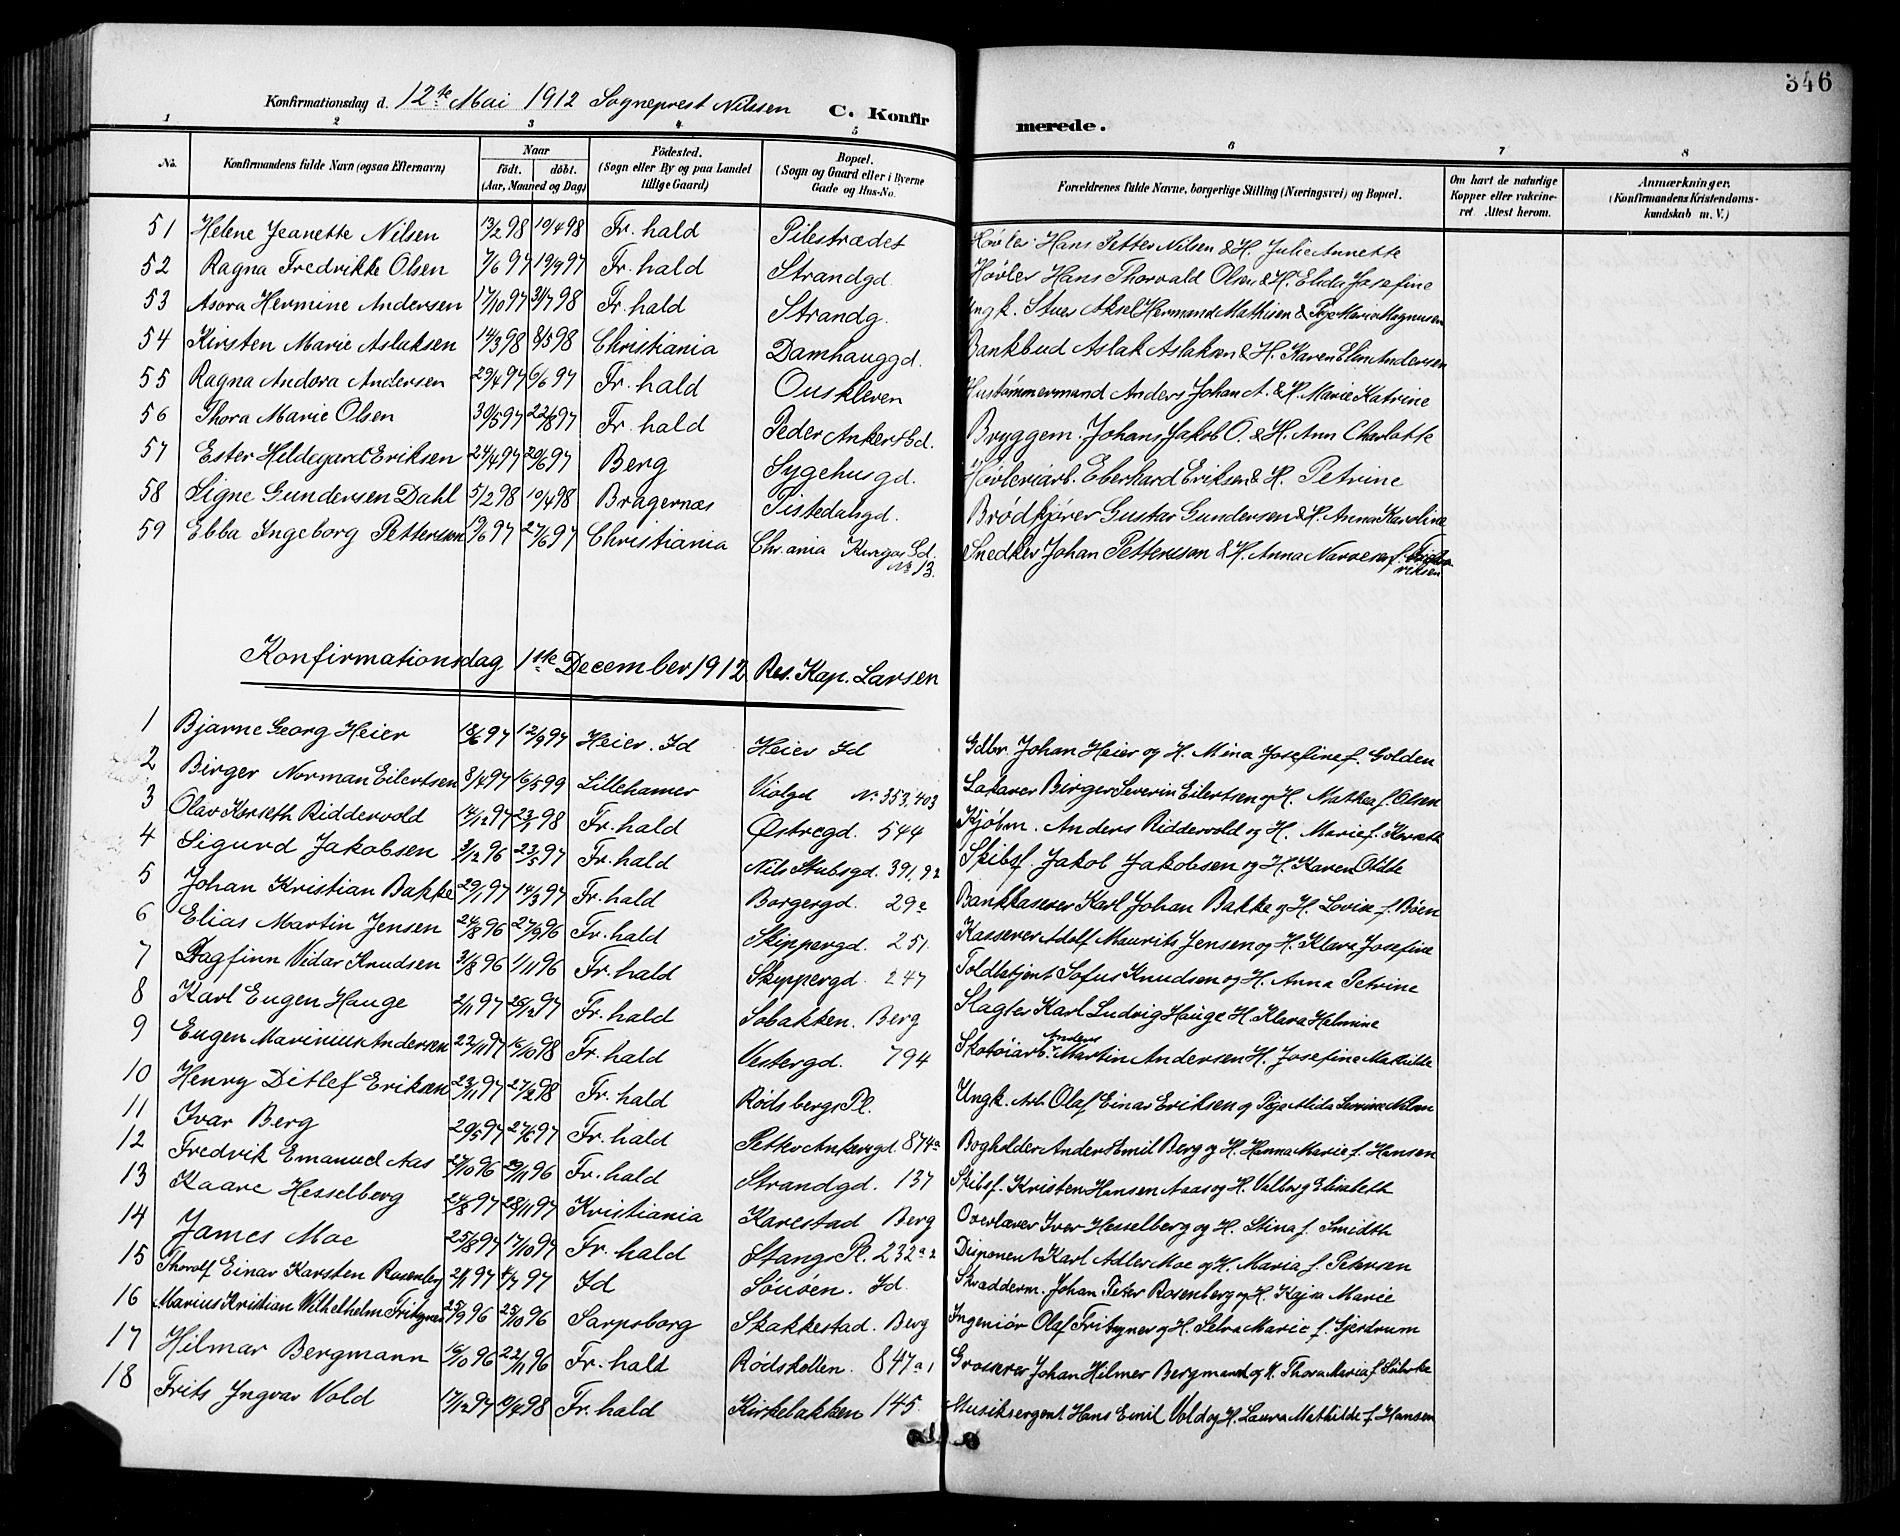 346
Konfirmationsdag d. 12te Mai 1912 Sogneprest Nilssen C. Konfirmerede.
1 2 3 4 5 6 7 8
No. Konfirmandens fulde Navn (ogsaa Efternavn) Naar født. døbt. (Aar, Maaned og Dag) Fødested. (Sogn eller By og paa Landet tillige Gaard) Bopæl. (Sogn og Gaard eller i Byerne Gade og Hus-No. Forældrenes fulde Navne, borgerlige Stilling (Næringsvei) og Bopæl. Om havt de naturlige Kopper eller vakcineret Attest herom. Anmærkninger. (Konfirmandens Kristendomskundskab m. V.)
51 Helene Jeanette Nilsen 13/2 98 10/4 98 Fr. hald Pilestrædet Høvler Hans Petter Nilsen & H. Julie Annette
52 Ragna Fredrikke Olsen 7/6 97 19/9 97 Fr. hald Strandgd. Høvler Hans Thorvald Olsen & H. Elida Josefine
53 Asora Hermine Andersen 17/10 97 31/7 98 Fr. hald Strandg. Ungk. Stuer Aksel Hermand Mathisen & Pige Maria Magnusen
54 Kirsten Marie Aslaksen 14/3 98 8/5 98 Christiania Damhauggd. Bankbud Aslak Aslaksen & H. Karen Elise Andersen
55 Ragna Andora Andersen 29/4 97 6/6 97 Fr. hald Ouskleven Hustømmermand Anders Johan A. & H. Marie Katrine
56 Thora Marie Olsen 30/5 97 22/8 97 Fr. hald Peder Ankers Gd. Bryggem. Johans Jakob O. & H. Ann Charlotte
57 Ester Hildegard Eriksen 24/4 97 20/6 97 Berg Sygehusgd. Høvleriarb. Eberhard Eriksen & H. Petrine
58 Signe Gundersen Dahl 5/2 98 10/4 98 Bragernæs Tistedalsgd. Brødkjører Gustav Gundersen & H. Anna Karoline
59 Ebba Ingeborg Pettersson 19/6 97 27/6 97 Christiania Chr.ania Gd. No 13. Snedker Johan Pettersson & H. Anna Narvesen f.
Konfirmationsdag 1ste December 1912 Res. Kap. Larsen
1 Bjarne Georg Heier 18/6 97 12/9 97 Heier. Id Heier Id Gdbr. Johan Heier og H. Mina Josefine f. Golden
2 Birger Norman Eilertsen 8/4 97 16/5 99 Lillehamer Violgd No. 353,403 Birger Severin Eilertsen og H. Mathea f. Olsen
3 Olav Korseth Riddervold 14/12 97 23/1 98 Fr. hald Østregd. 544 Kjøbm. Anders Riddervold og H. Marie f. Korseth
4 Sigurd Jakobsen 3/12 96 23/5 97 Fr. hald Nils Stubsgd. 391,92 Skibsf. Jakob Jakobsen og H. Karen Otilde
5 Johan Kristian Bakke 29/1 97 14/3 97 Fr. hald Borgergd. 29e Bankkaserer Karl Johan Bakke og H. Lovise f. Böen
6 Elias Martin Jensen 24/8 96 27/9 96 Fr. hald Skippergd. 251. Kasserer Adolf Maurits Jensen og H. Klara Josefine
7 Dagfinn Vidar Knudsen 31/8 96 1/11 96 Fr. hald Skippergd. 247 Toldbetjent Sofus Knudsen og H. Anna Petrine
8 Karl Eugen Hauge 2/11 97 25/12 97 Fr. hald Sobakken. Berg Slagter Karl Ludvig Hauge H. Klara Halmine
9 Eugen Marinius Andersen 22/11 97 16/10 98 Fr. hald Vestergd. 794 Skotøiarb. Anders Martin Andersen H. Josefine Mathilde
10 Henry Ditlef Eriksen 23/11 97 27/2 98 Fr. hald Rødsbergs Pl. Ungk. Arb. Olaf Einar Eriksen og Pige Alida Nilsen
11 Ivar Berg 20/5 97 27/6 97 Fr. hald Petter Ankersgd. 874a Bogholder Anders Emil Berg og H. Hanna Marie f. Hansen
12 Fredrik Emanuel Aas 27/10 96 29/11 96 Fr. hald Strandgd. 137 Skibsf. Kristen Hansen Aas og H. Valborg Elisabeth
13 Kaare Hesselberg 24/8 97 28/11 97 Kristiania Karestad Berg Overlærer Iver Hesselberg og H. Stina f. Smidth
14 James Moe 25/8 97 17/10 97 Fr. hald Stangs Pl. 232a2 Disponent Karl Adler Moe og H. Maria f. Petersen
15 Thorolf Einar Karsten Rosenberg 2/1 97 4/7 97 Id Id. Skradderm. Johan Peter Rosenberg og H. Kajsa Marie
16 Marius Kristian Vilhelhelm Fritzner 25/9 96 25/10 96 Sarpsborg Skakkestad. Berg Ingeniør Olaf Fritzner og H. Petra Marie f. Gjerdrum
17 Hilmar Bergmann 16/10 96 22/11 96 Fr. hald Rødskollen. 847a1 Grosserer Johan Hilmer Bergmann og H. Thora Maria f. Lührke
18 Frits Ingvar Vold 17/12 97 11/4 98 Fr. hald Kirkebakken 145. Musiksergent Hans Emil Vold og H. Laura Mathilde f. Hansen